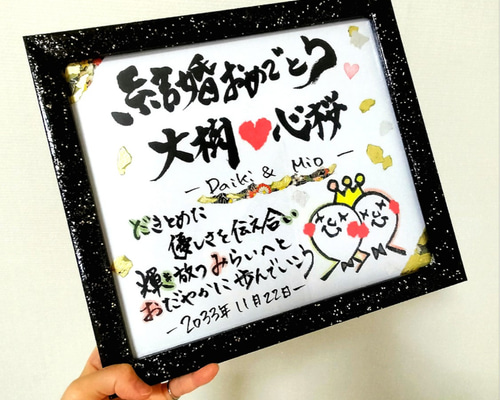 結婚おめでとう
大樹♥心桜
— Daiki & Mio —
だきとめた
優しさを伝え合い
輝き放つみらいへと
おだやかに歩んでいこう
—2033年11月22日—